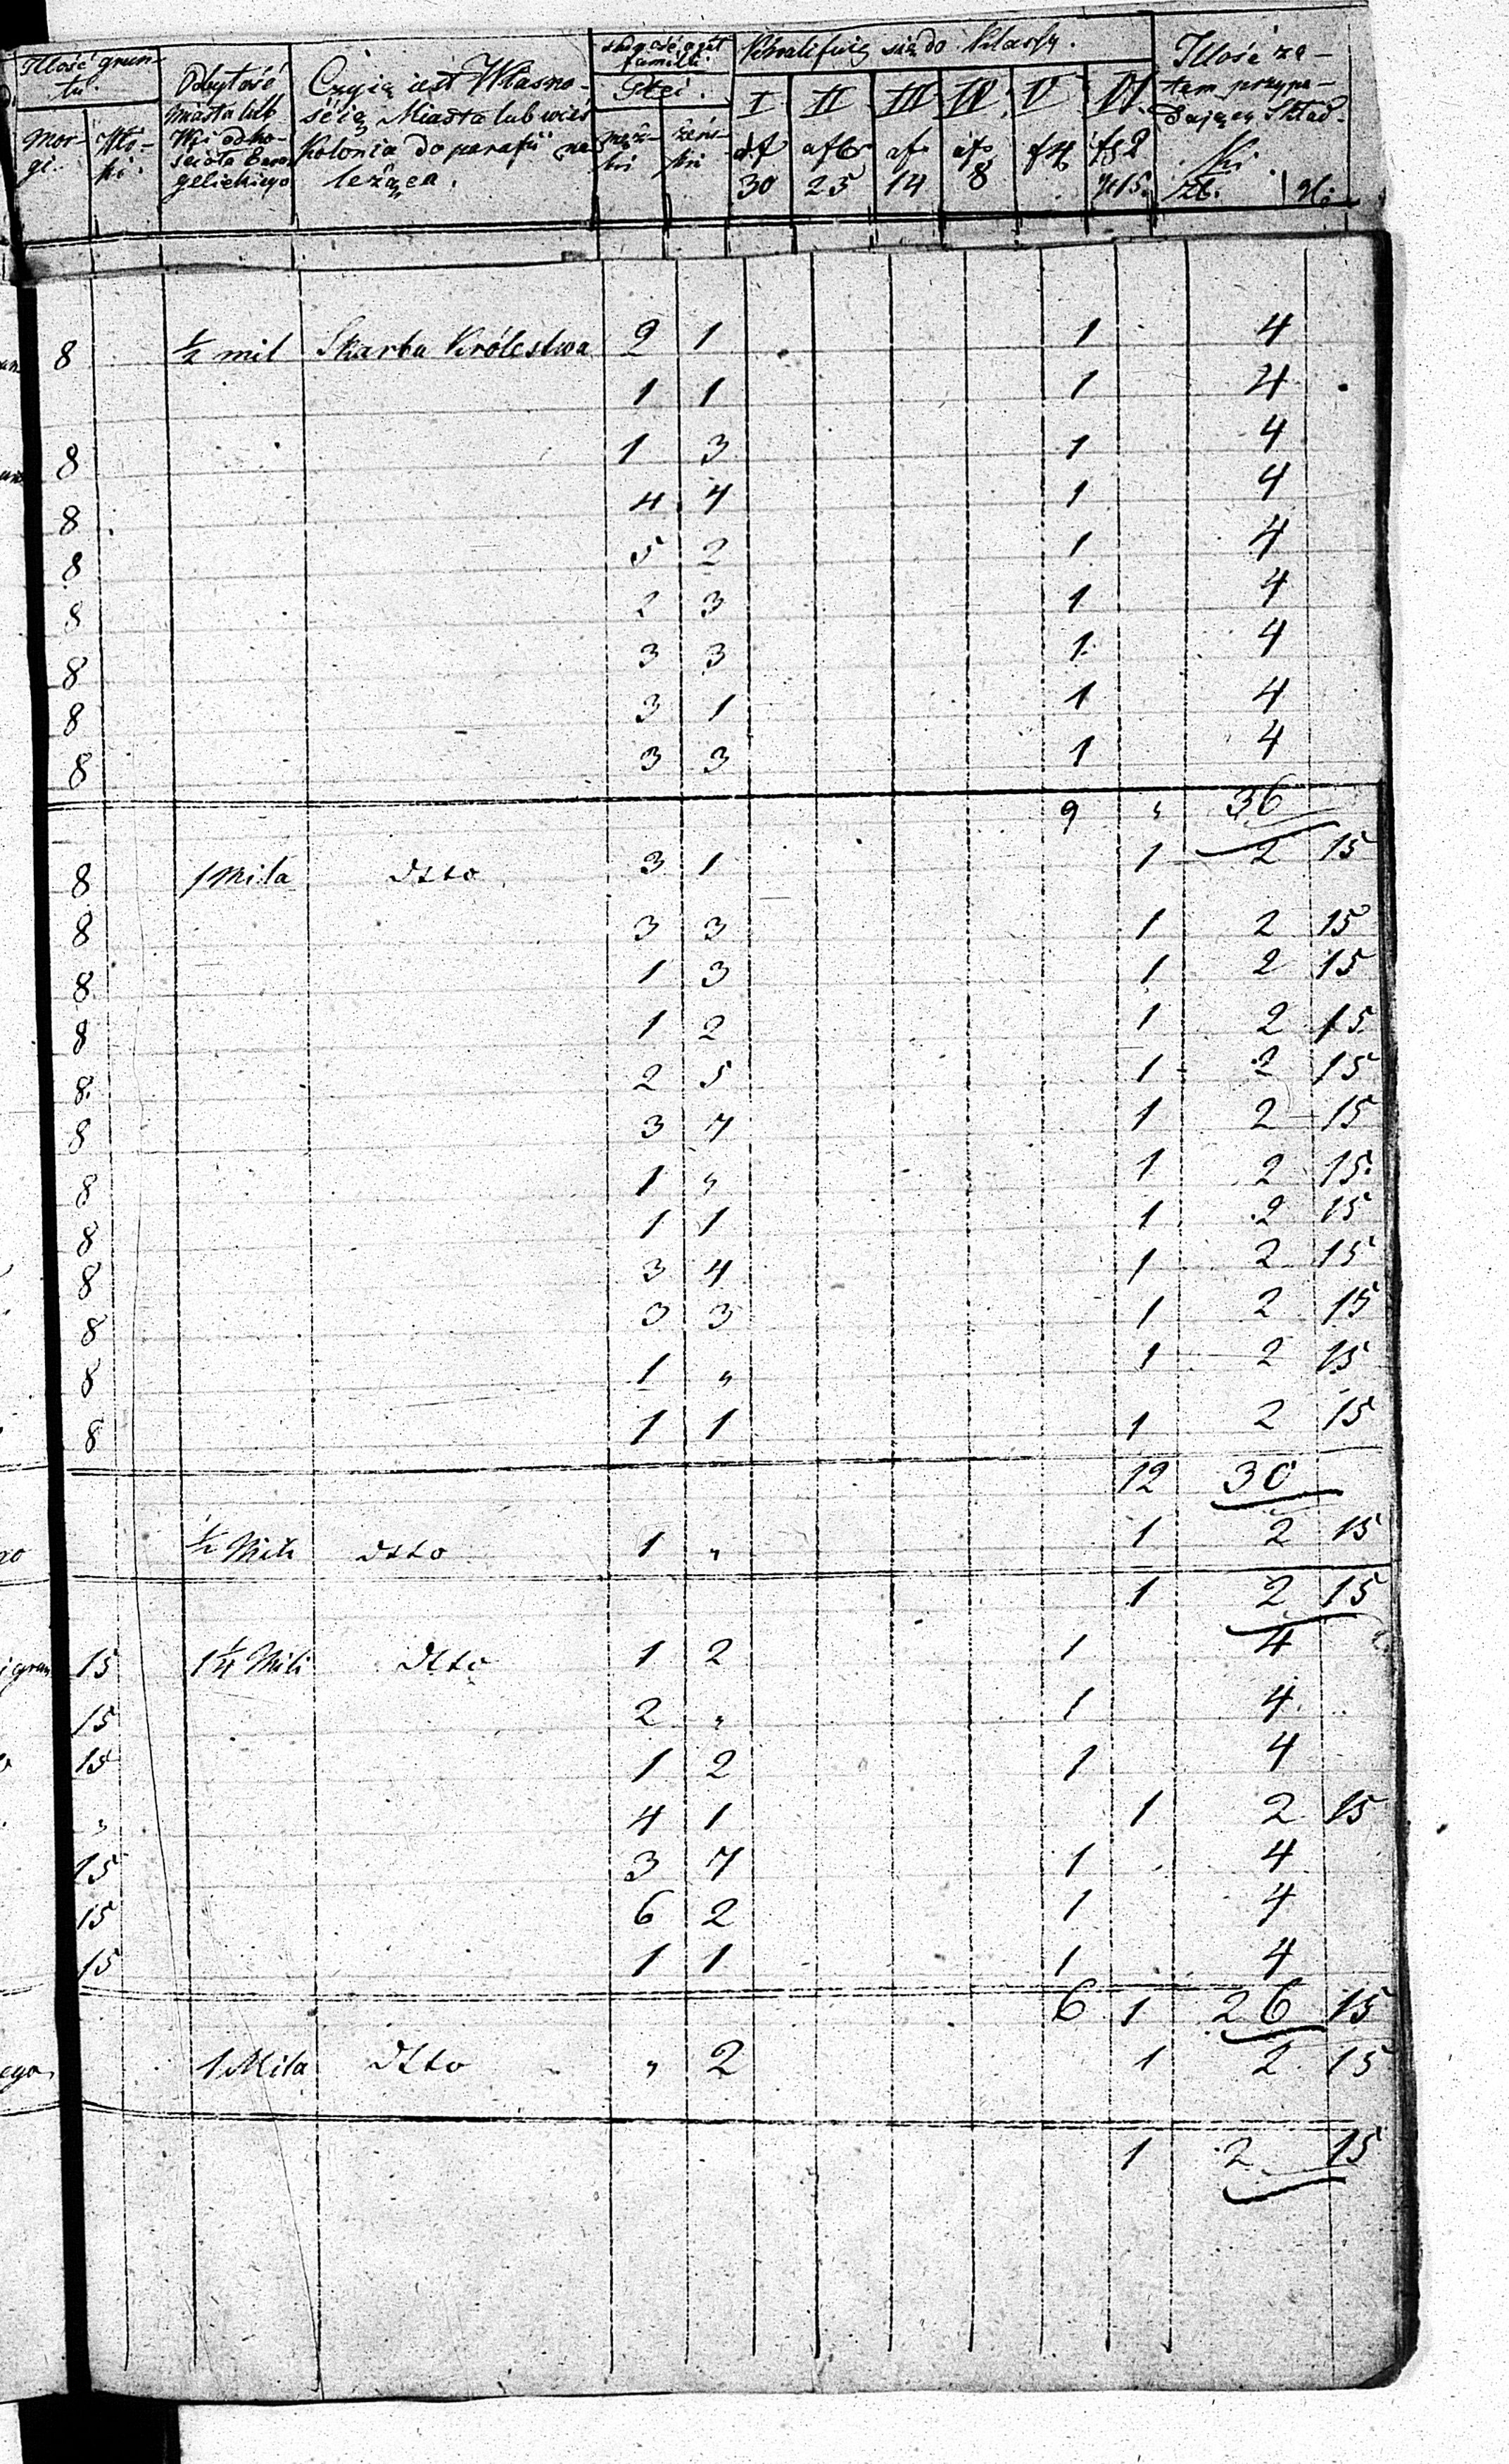 Illość grun-
tu.
Mor-
gi.
Odległość
miasta lub
Wsi od ko-
scioła Ewan
gelickiego
Czyią jest Własno-
ścią Miasta lub wieś
Kolonia do parafii na
leżąca.
familii
Płci.
męz-
ki
żeńs-
ki
Kwalifuię się do Klassy.
I II III IV V VI
30 25 14 8 f 4 f 2 g 15
Illość za-
tem przypa-
dającey Skład-
ki.
zł. gr.
8 ½ mil Skarbu Królestwa 2 1 1 4
1 1 1 4
8 1 3 1 4
8 4 4 1 4
8 5 2 1 4
8 2 3 1 4
8 3 3 1 4
8 3 1 1 4
8 3 3 1 4
9 " 36
8 1 Mila Dtto 3 1 1 2 15
8 3 3 1 2 15
8 1 3 1 2 15
8 1 2 1 2 15
8 2 5 1 2 15
8 3 7 1 2 15
8 1 " 1 2 15
8 1 1 1 2 15
8 3 4 1 2 15
8 3 3 1 2 15
8 1 " 1 2 15
8 1 1 1 2 15
12 30
½ Mili Dtto 1 " 1 2 15
1 2 15
15 1¼ Mili Dtto 1 2 1 4
15 2 " 1 4
15 1 2 1 4
" 4 1 1 2 15
15 3 7 1 4
15 6 2 1 4
15 1 1 1 4
6 1 26 15
1 Mila Dtto " 2 1 2 15
1 2 15